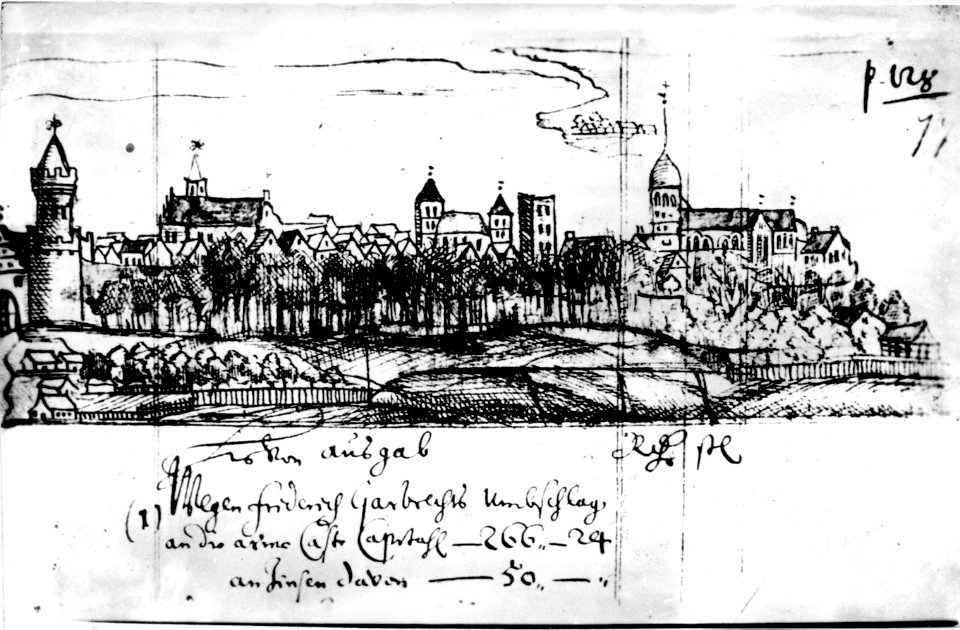 p. 128
77
von ausgab Rthr ßl
(1) Wegen friderich Garbrechts Umbschlag,
an die arme Caste Capitahl — 266,, — 24
an Zinsen davon — 50,, — ,,